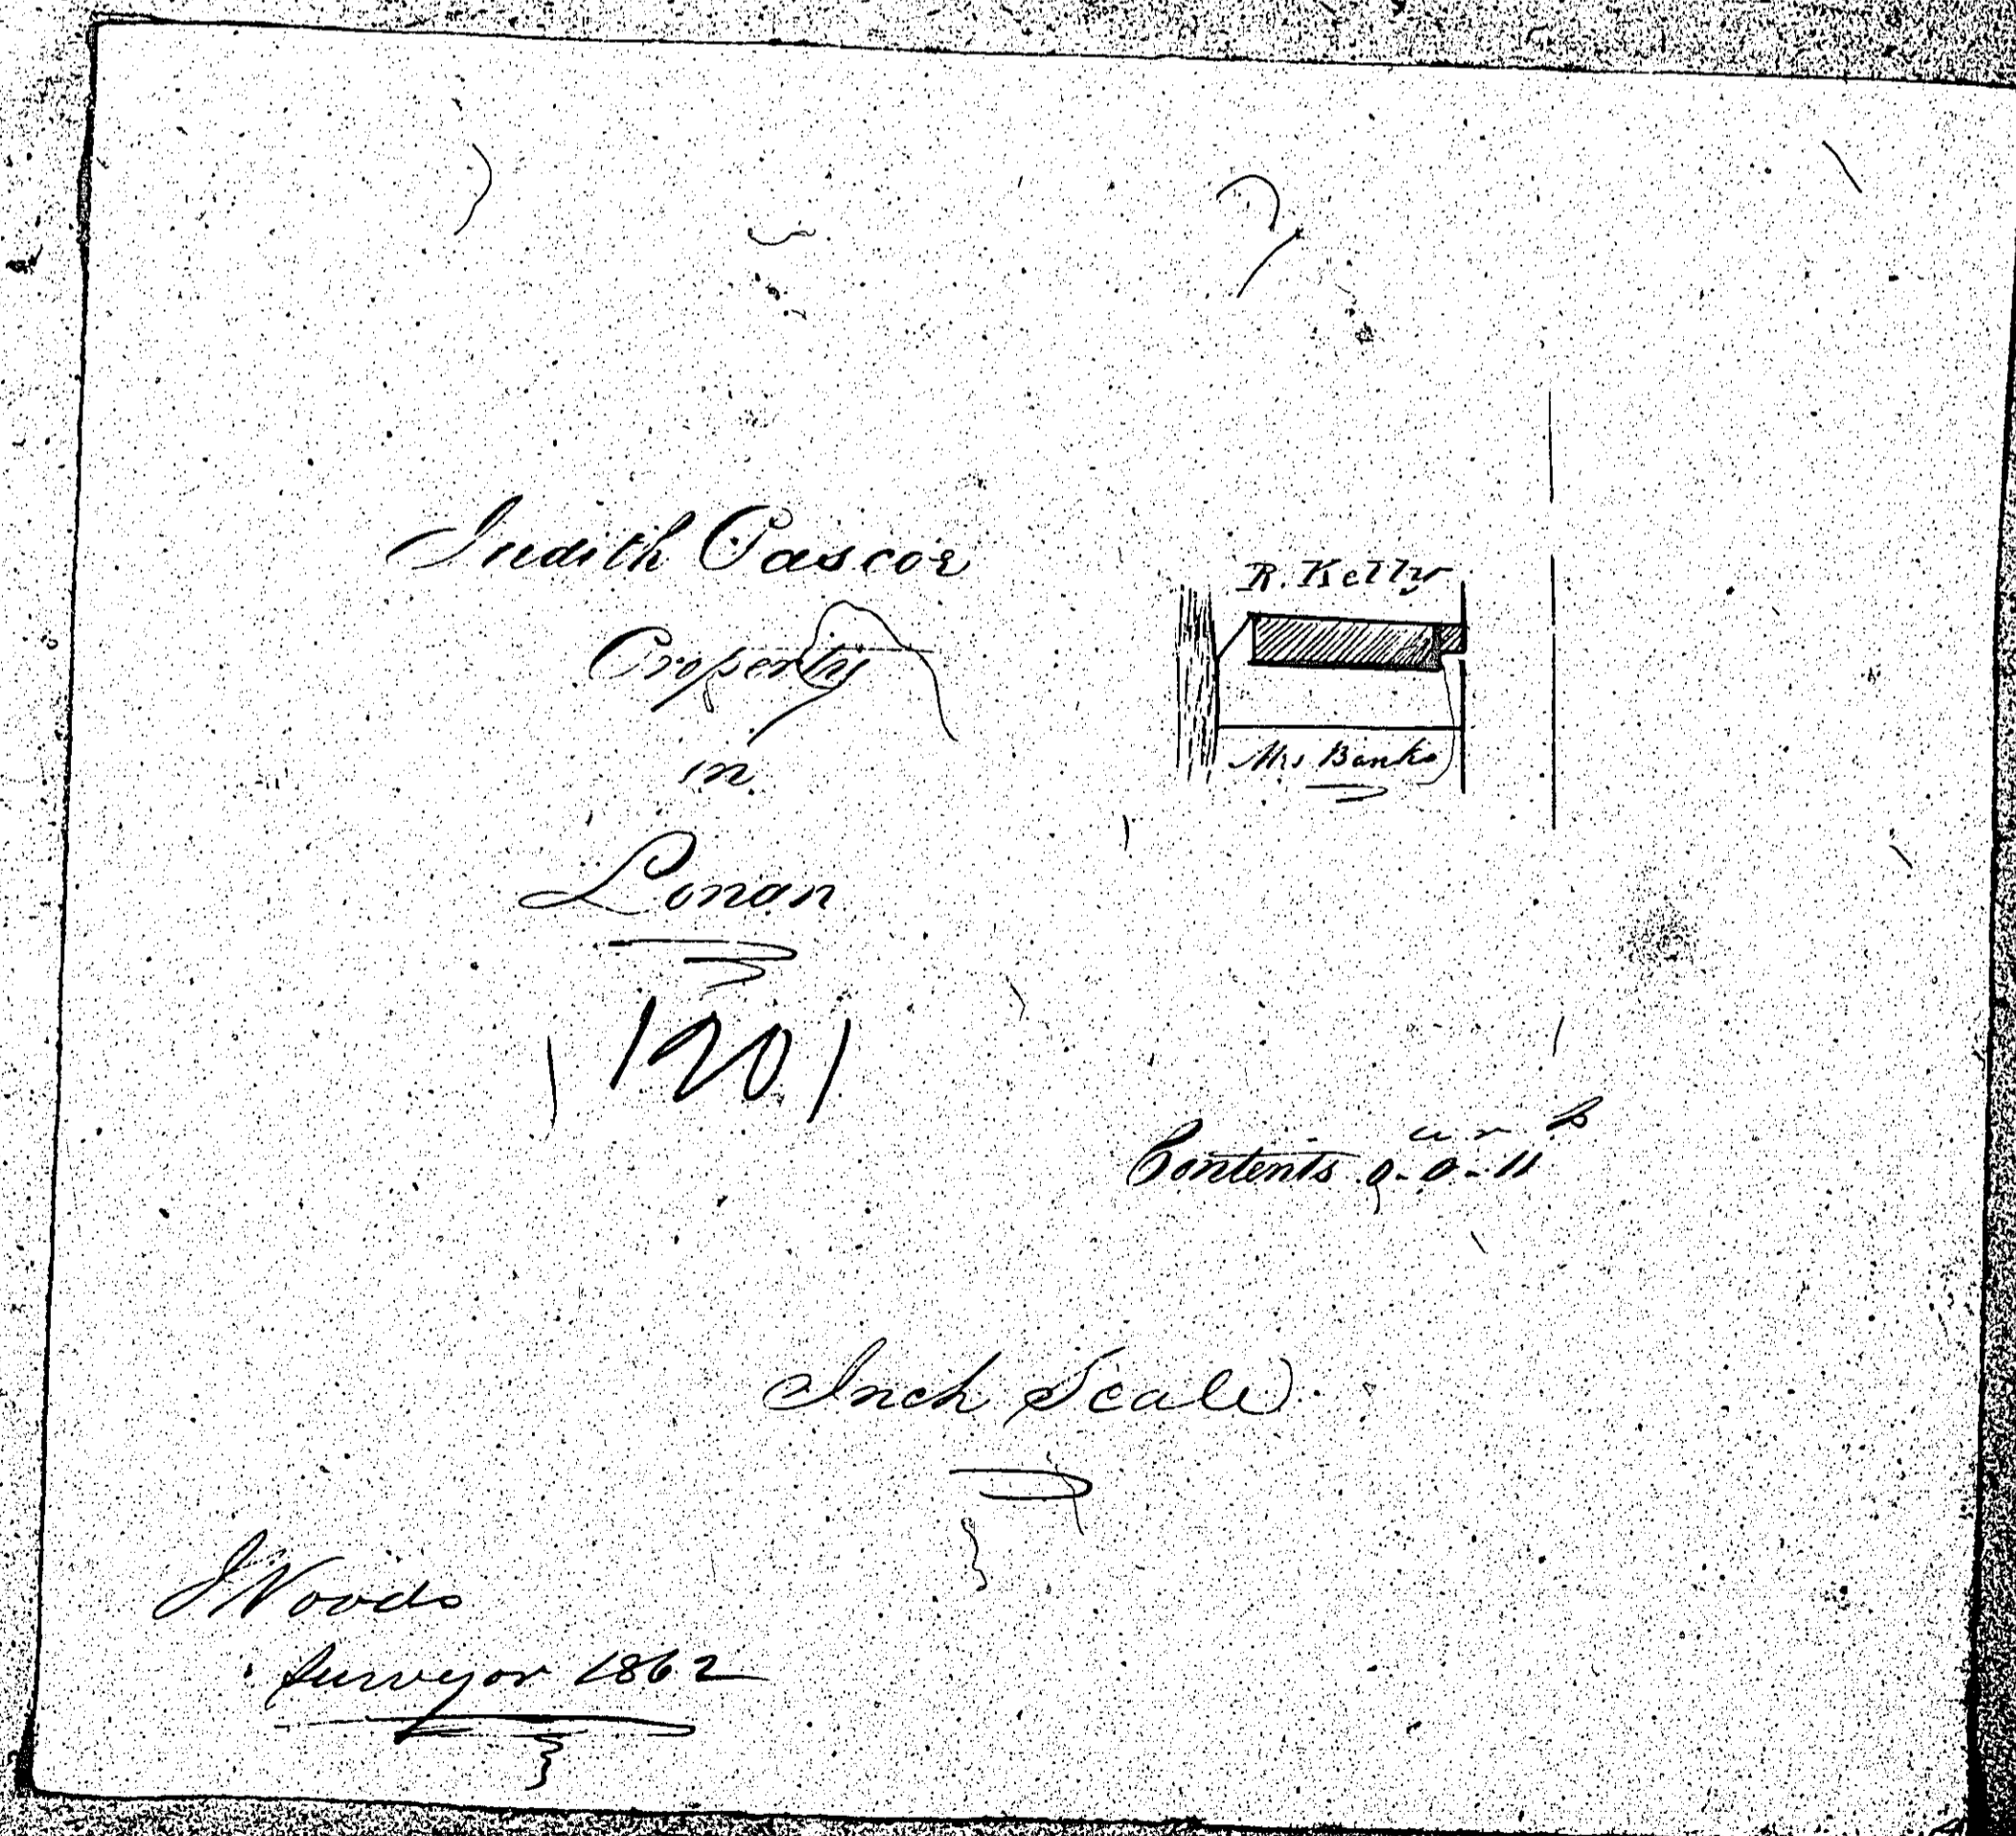 Judith Pascoe
Property
in
Lonan
1201
R. Kelly
Mrs Banks
a r p
Contents 0-0-11
Inch Scale
J Woods
Surveyor 1862